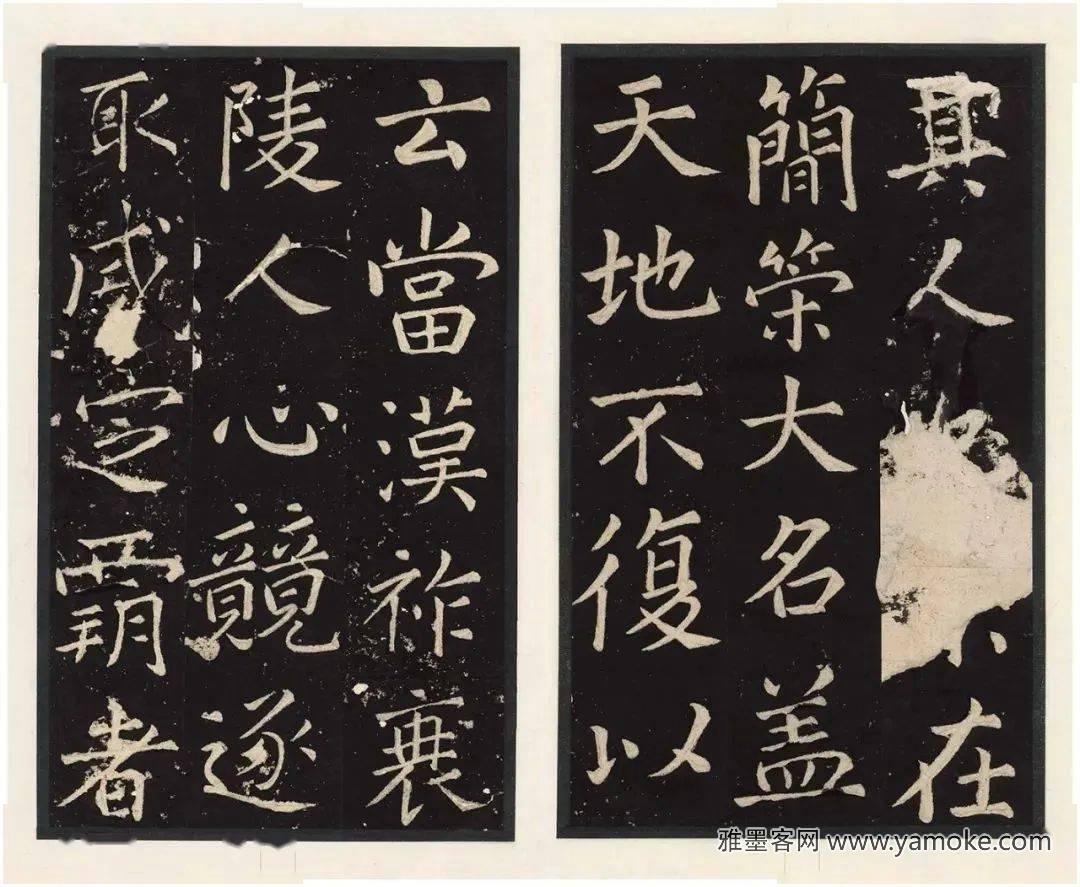 真人在
簡策大名盖
天地不復以
云當漢祚衰
陵人心競逐
取威定霸者
雅墨客网 www.yamoke.com